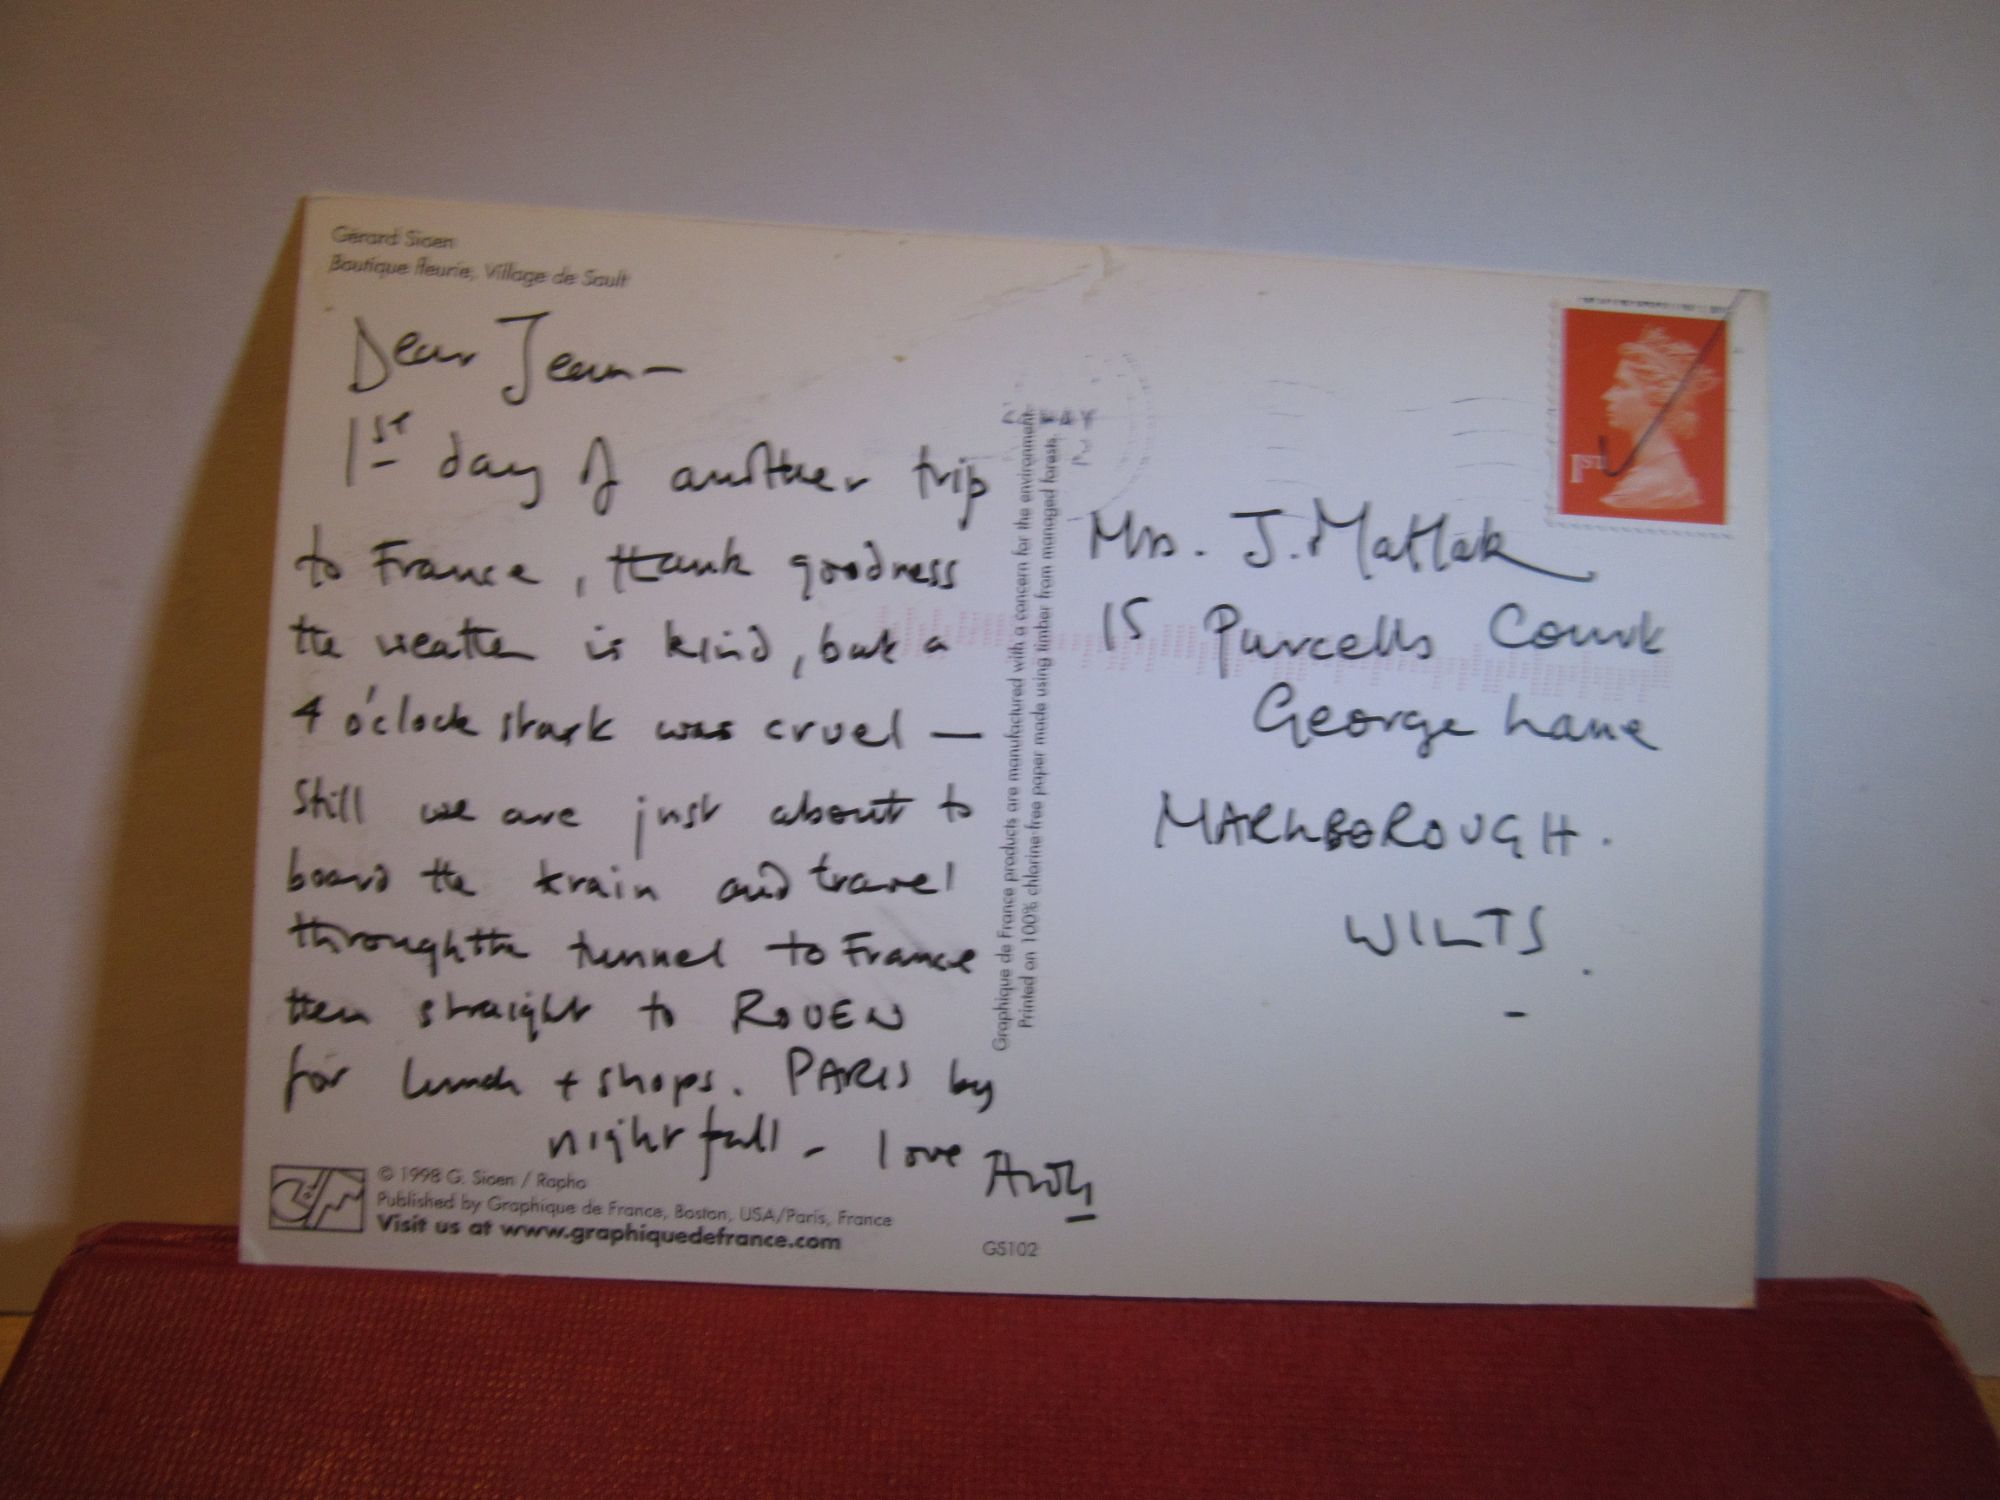 Gérard Sioen
Boutique fleurie, Village de Sault
Dear Jean —
1st day of another trip
to France, thank goodness
the weather is kind, but a
4 o'clock start was cruel —
Still we are just about to
board the train and travel
through the tunnel to France
then straight to ROUEN
for lunch + shops. PARIS by
nightfall - love
© 1998 G. Sioen / Rapho
Published by Graphique de France, Boston, USA/Paris, France
Visit us at www.graphiquedefrance.com
GS102
Graphique de France products are manufactured with a concern for the environment
Printed on 100% chlorine-free paper made using timber from managed forests.
1ST
Mrs. J. Matlak
15 Purcells Court
George Lane
MARLBOROUGH.
WILTS.